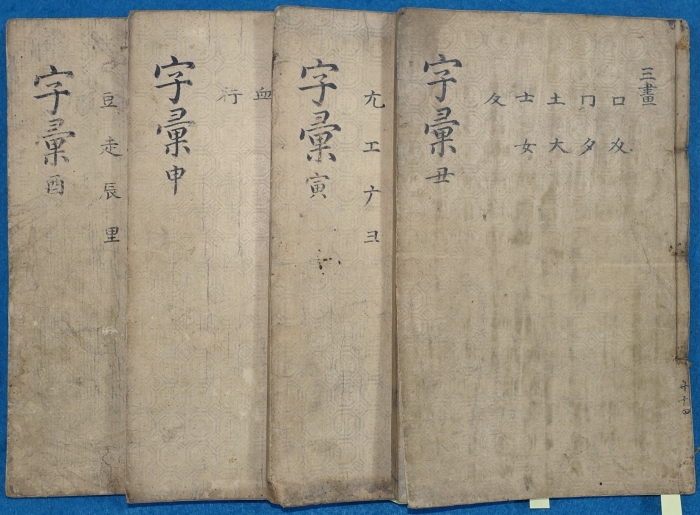 三畫
口 夊
冂 夕
土 大
士 女
夂
字彙 丑
尢 工 𠂇 彐
字彙 寅
血
行
字彙 申
豆 走 辰 里
字彙 酉
共十四